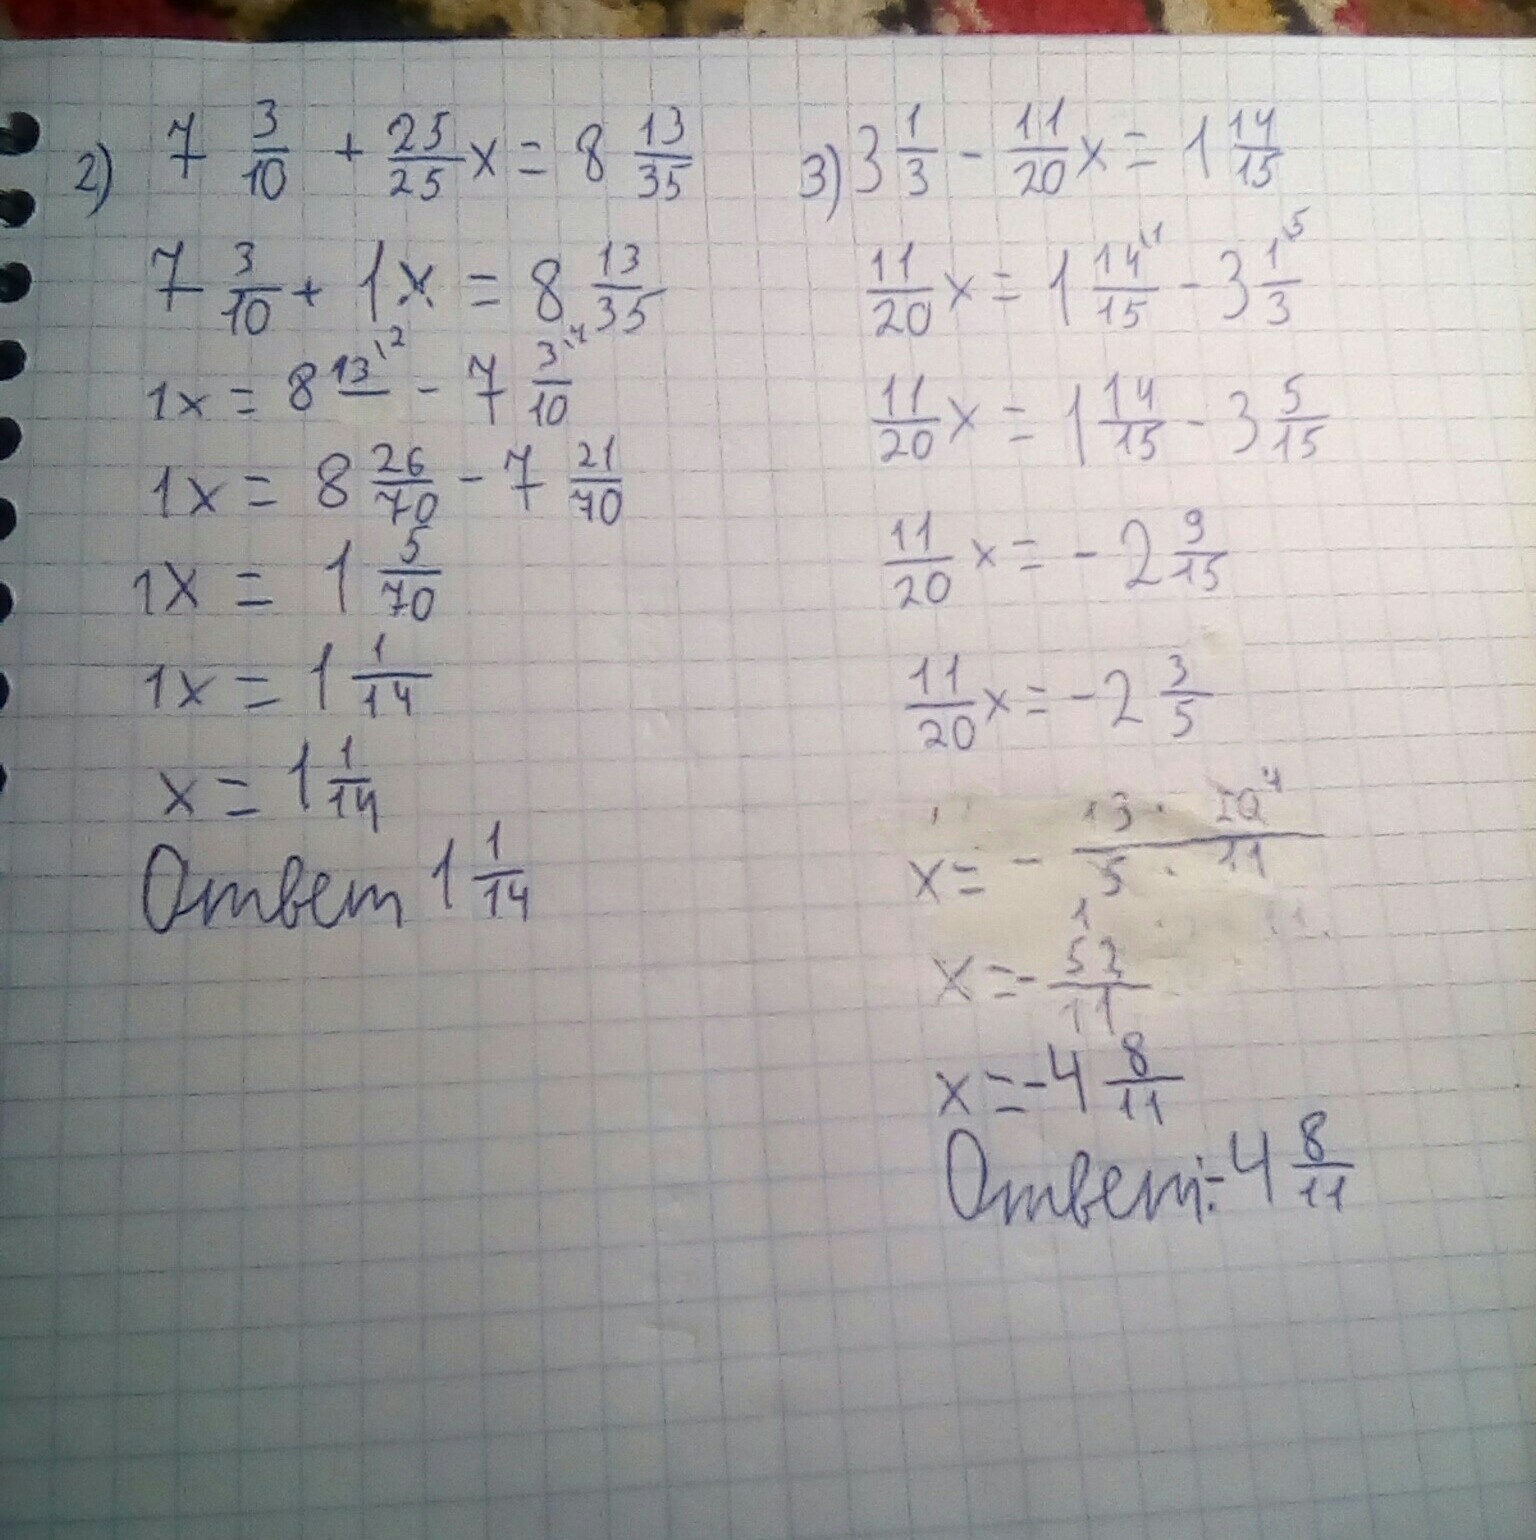 2) 7 3/10 + 25/25 x = 8 13/35
7 3/10 + 1x = 8 13/35
1x = 8 13\2/ - 7 3\7/10
1x = 8 26/70 - 7 21/70
1x = 1 5/70
1x = 1 1/14
x = 1 1/14
Ответ 1 1/14
3) 3 1/3 - 11/20 x = 1 14/15
11/20 x = 1 14\1/15 - 3 1\5/3
11/20 x = 1 14/15 - 3 5/15
11/20 x = - 2 9/15
11/20 x = - 2 3/5
x = - 13 · 20\4/5 · 11
1
x = - 52/11
x = - 4 8/11
Ответ: - 4 8/11